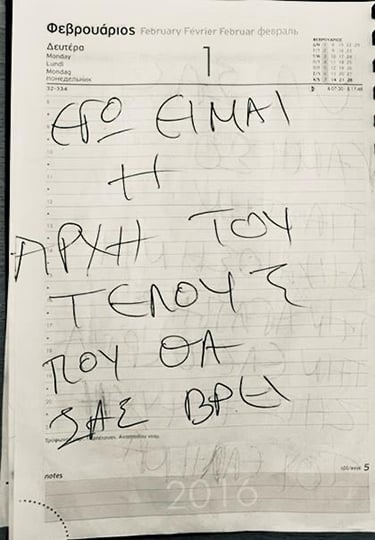 Φεβρουάριος February Février Februar февраль
Δευτέρα
Monday
Lundi
Montag
понедельник
1
32-334
ΕΓΩ ΕΙΜΑΙ
Η
ΑΡΧΗ ΤΟΥ
ΤΕΛΟΥΣ
ΠΟΥ ΘΑ
ΣΑΣ ΒΡΕΙ
notes
5
2016